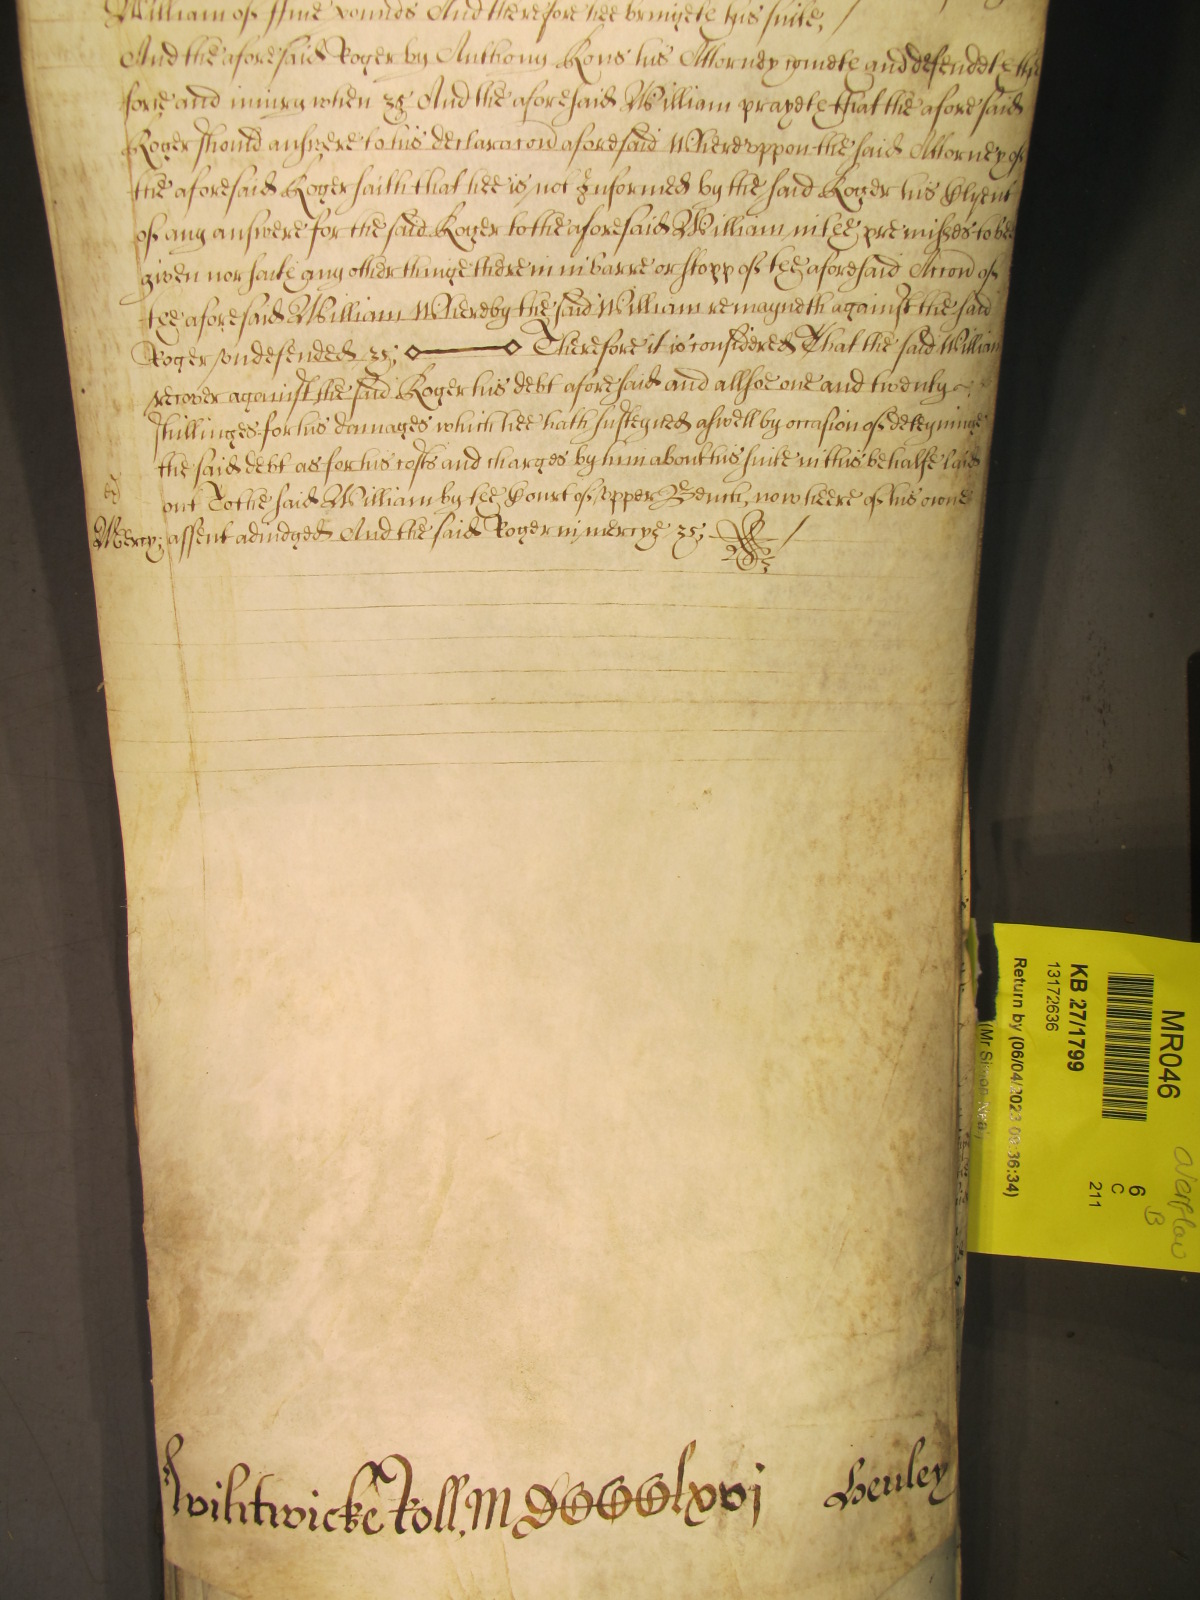 William of ffive pounds And therefore hee bringeth this suite,/
And the aforesaid Roger by Anthony his Attorney cometh and defendeth the
force and iniury when &c And the aforesaid William prayeth that the aforesaid
Roger should answere to his declaracon aforesaid Whereuppon the said Attorney of
the aforesaid Roger saith that hee is not Informed by the said Roger his Clyent
of any answere for the said Roger to the aforesaid William in the premisses to bee
given nor saith any other thinge therein in barre or stopp of the aforesaid Accon of
the aforesaid William Whereby the said William remayneth against the said
Roger vndefended &c; Therefore it is considered That the said William
recover against the said Roger his debt aforesaid and allsoe one and twenty
shillinges for his damages which hee hath susteyned aswell by occasion of deteyninge
the said debt as for his costs and charges by him about his suite in this behalfe laid
out To the said William by the Court of vpper Bench, now heere of his owne
Mercy; assent adiudged And the said Roger in mercy &c; /
Wihtwicke Roll, MDCCClxvj Henley
MR046
KB 27/1799
13172636
Return by (06/04/2023 09:36:34)
(Mr Simon Neal)
6
C
211
overflow
B